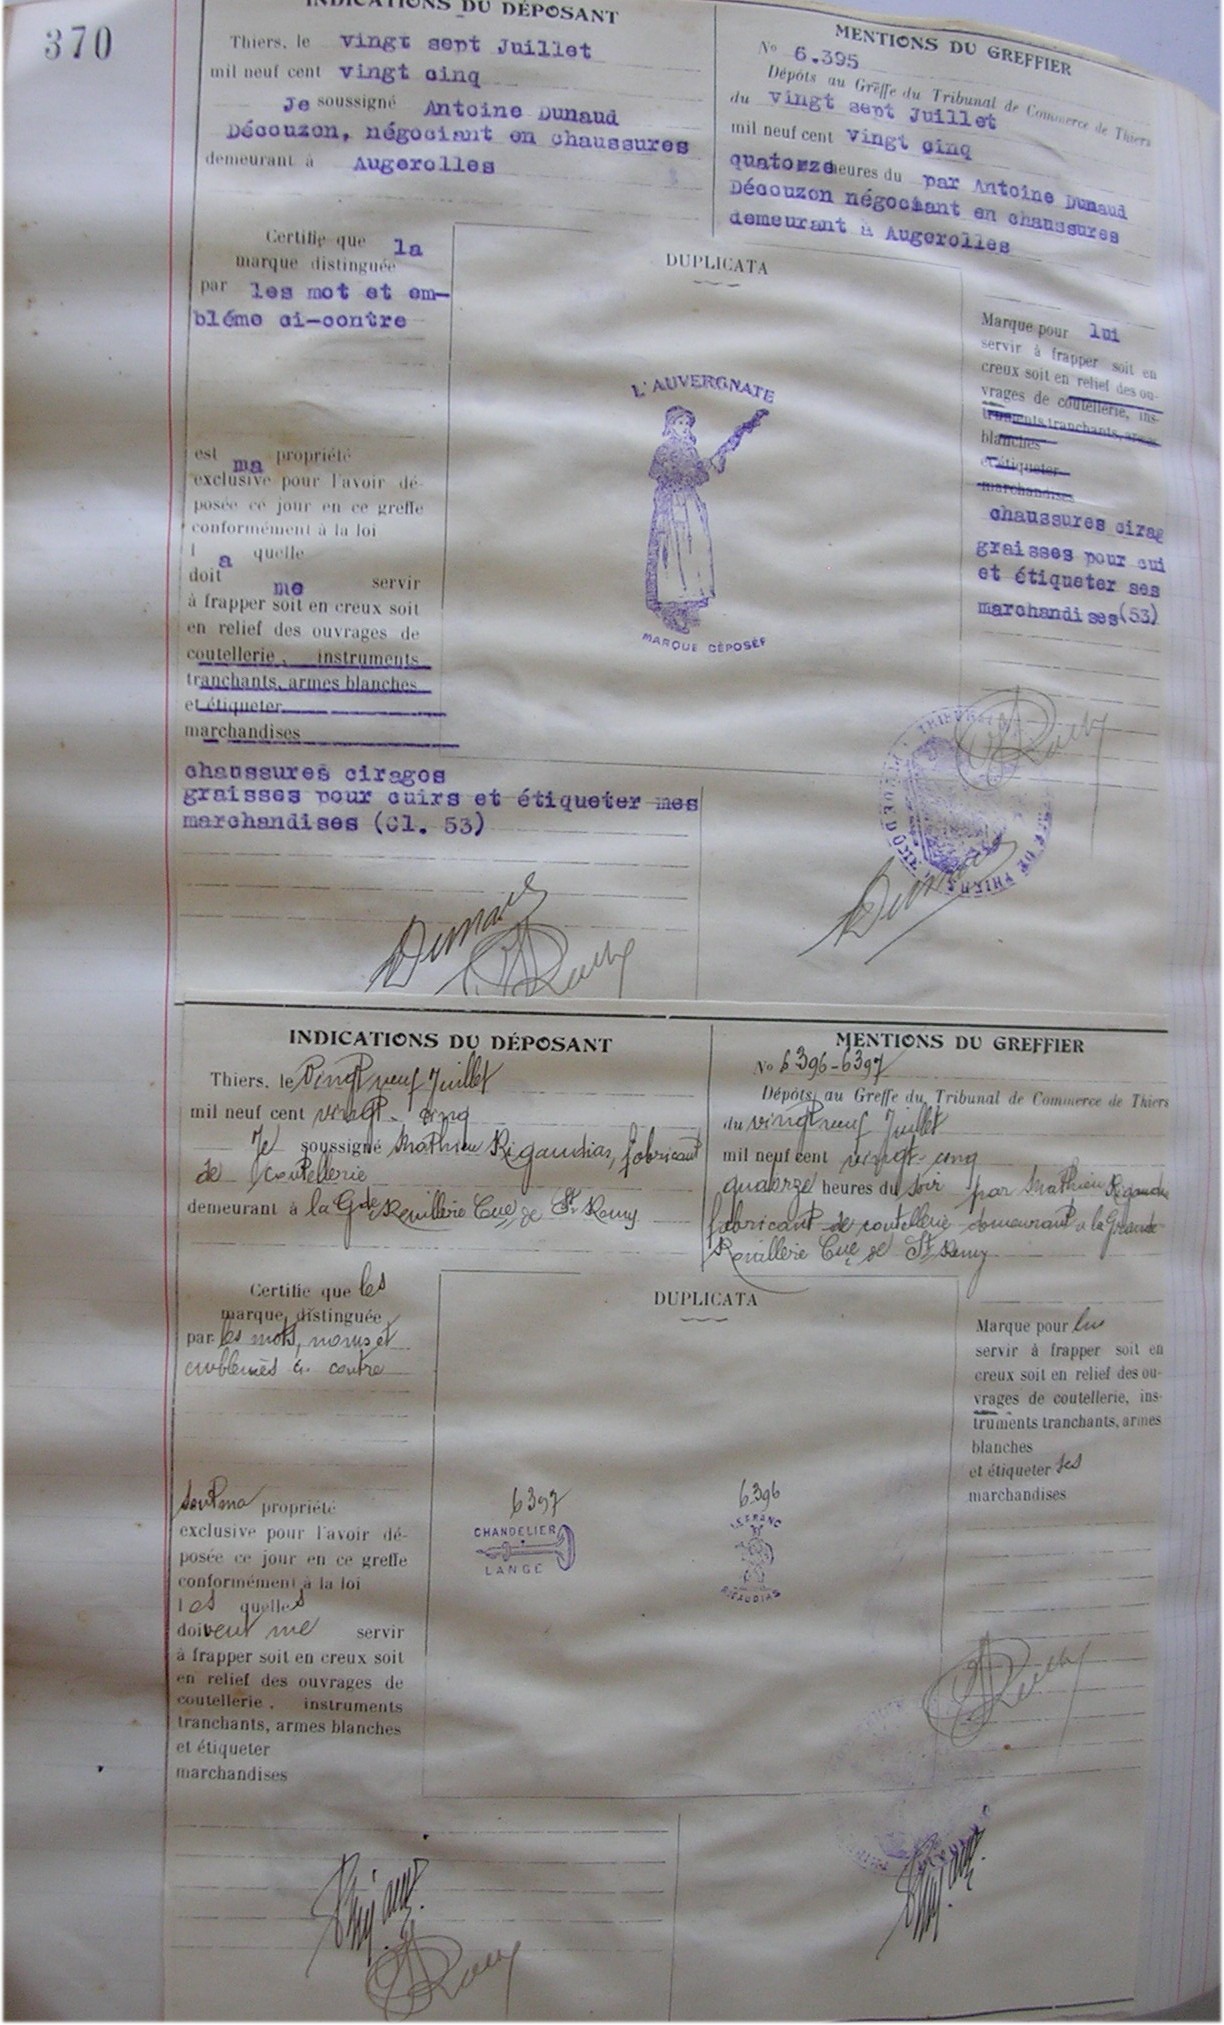 370
INDICATIONS DU DÉPOSANT
Thiers, le vingt sept Juillet
mil neuf cent vingt cinq
Je soussigné Antoine Dunaud
Découzon, négociant en chaussures
demeurant à Augerolles
MENTIONS DU GREFFIER
No 6.395
Dépôts au Greffe du Tribunal de Commerce de Thiers
du vingt sept Juillet
mil neuf cent vingt cinq
quatorze heures du par Antoine Dunaud
Découzon négociant en chaussures
demeurant à Augerolles
Certifie que la
marque distinguée
par les mot et em-
bléme ci-contre
est ma propriété
exclusive pour l'avoir dé-
posée ce jour en ce greffe
conformément à la loi
l a quelle
doit me servir
à frapper soit en creux soit
en relief des ouvrages de
coutellerie, instruments
tranchants, armes blanches
et étiqueter
marchandises
chaussures cirages
graisses pour cuirs et étiqueter mes
marchandises (Cl. 53)
DUPLICATA
L'AUVERGNATE
MARQUE DÉPOSÉE
Marque pour lui
servir à frapper soit en
creux soit en relief des ou-
vrages de coutellerie, ins-
truments tranchants, armes
blanches
et étiqueter
marchandises
chaussures cirag
graisses pour cui
et étiqueter ses
marchandises (53)
INDICATIONS DU DÉPOSANT
Thiers, le Vingt neuf Juillet
mil neuf cent vingt-cinq
Je soussigné Mathieu Rigaudias, fabricant
de coutellerie
demeurant à la Gde Renillerie Cne de St Remy
MENTIONS DU GREFFIER
No 6396-6397
Dépôts au Greffe du Tribunal de Commerce de Thiers
du vingt neuf Juillet
mil neuf cent vingt-cinq
quatorze heures du soir par Mathieu Rigaudias
fabricant de coutellerie demeurant à la Grande
Renillerie Cne de St Remy
Certifie que les
marque distinguée
par les mots, noms et
emblemes ci-contre
sont ma propriété
exclusive pour l'avoir dé-
posée ce jour en ce greffe
conformément à la loi
les quelles
doivent me servir
à frapper soit en creux soit
en relief des ouvrages de
coutellerie, instruments
tranchants, armes blanches
et étiqueter
marchandises
DUPLICATA
6397
CHANDELIER
LANGE
6396
LEFRANC
RIGAUDIAS
Marque pour lui
servir à frapper soit en
creux soit en relief des ou-
vrages de coutellerie, ins-
truments tranchants, armes
blanches
et étiqueter ses
marchandises